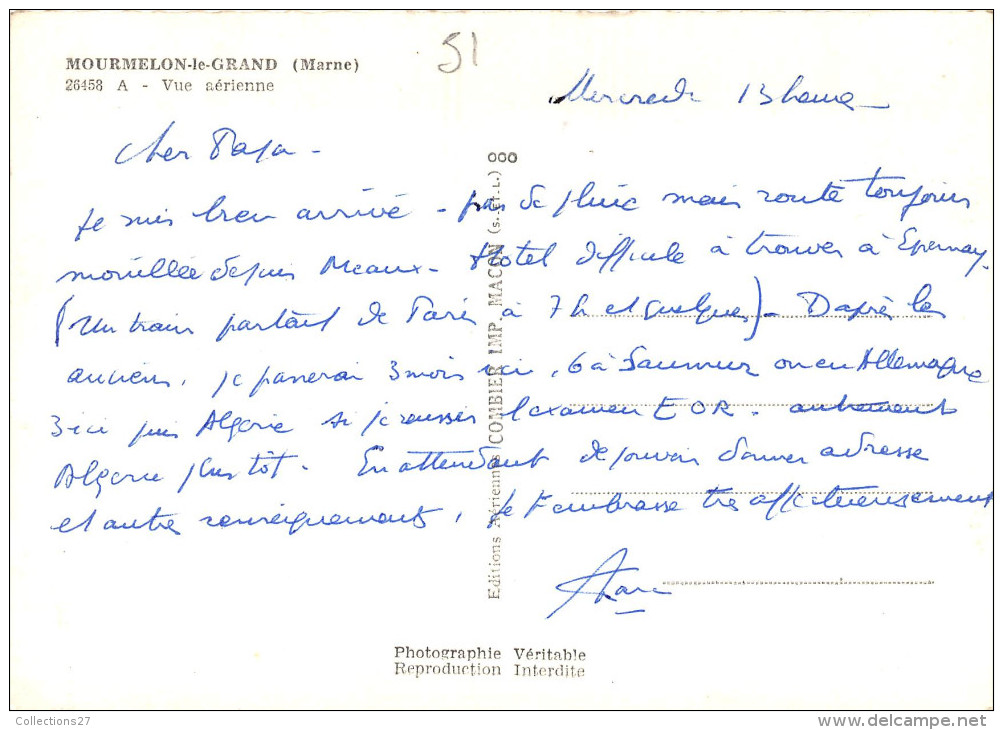 MOURMELON-le-GRAND (Marne)
26453 A - Vue aérienne
51
Mercredi 13 heures
Cher Papa -
Je suis bien arrivé - pas de pluie mais route toujours
mouillée depuis Meaux - Hôtel difficile à trouver à Epernay.
(Un train partait de Paris à 7h et quelques) - D'après les
anciens, je passerai 3 mois ici, 6 à Saumur ou en Allemagne
3 ici puis Algérie si je réussis l'examen E O R. autrement
Algérie plus tôt. En attendant de pouvoir donner adresse
et autres renseignements, je t'embrasse très affectueusement
Editions Aériennes COMBIER IMP. MACON (S.-et-L.) 000
Photographie Véritable
Reproduction Interdite
Collections27
www.delcampe.net